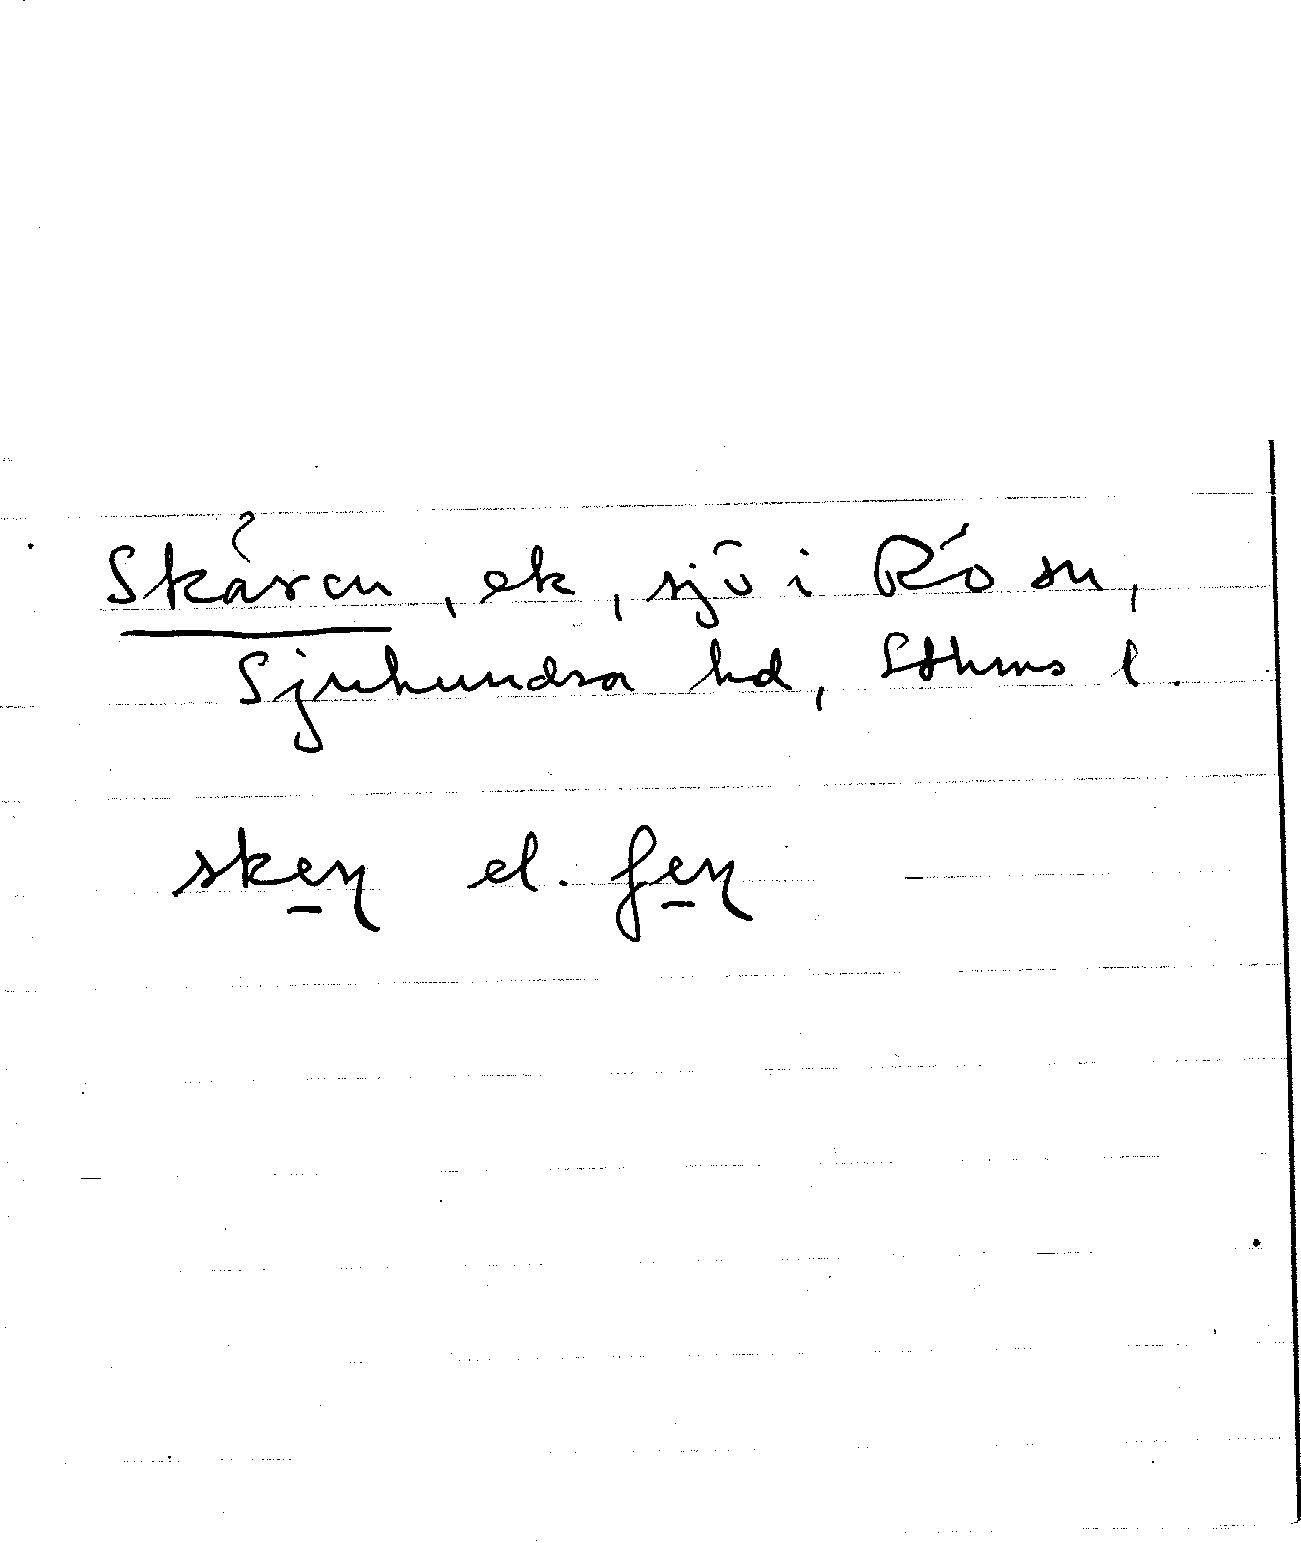 Skåren, ek, sjö i Rö sn,
Sjuhundra hd, Sthms l.
skeɳ el. ʃeɳ